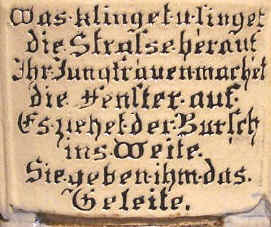 Was·klinget·u·singet
die·Straſse·herauf
Ihr·Jungfrauen·machet
die Fenſter·auf.
Es·ziehet·der·Burſch
ins·Weite.
Sie·geben·ihm·das.
Geleite.